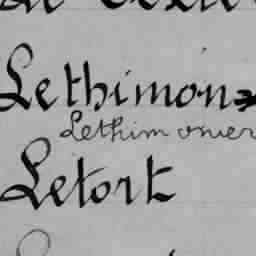 Lethimon
Lethimonier
Letort